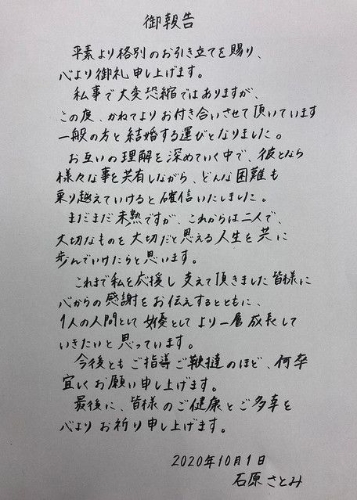 御報告
平素より格別のお引き立てを賜り、
心より御礼申し上げます。
私事で大変恐縮ではありますが、
この度、かねてよりお付き合いさせて頂いています
一般の方と結婚する運びとなりました。
お互いの理解を深めていく中で、彼となら
様々な事を共有しながら、どんな困難も
乗り越えていけると確信いたしました。
まだまだ未熟ですが、これからは二人で、
大切なものを大切だと思える人生を共に
歩んでいけたらと思います。
これまで私を応援し支えて頂きました皆様に
心からの感謝をお伝えするとともに、
1人の人間として女優としてより一層成長して
いきたいと思っています。
今後ともご指導ご鞭撻のほど、何卒
宜しくお願い申し上げます。
最後に、皆様のご健康とご多幸を
心よりお祈り申し上げます。
2020年10月1日
石原さとみ